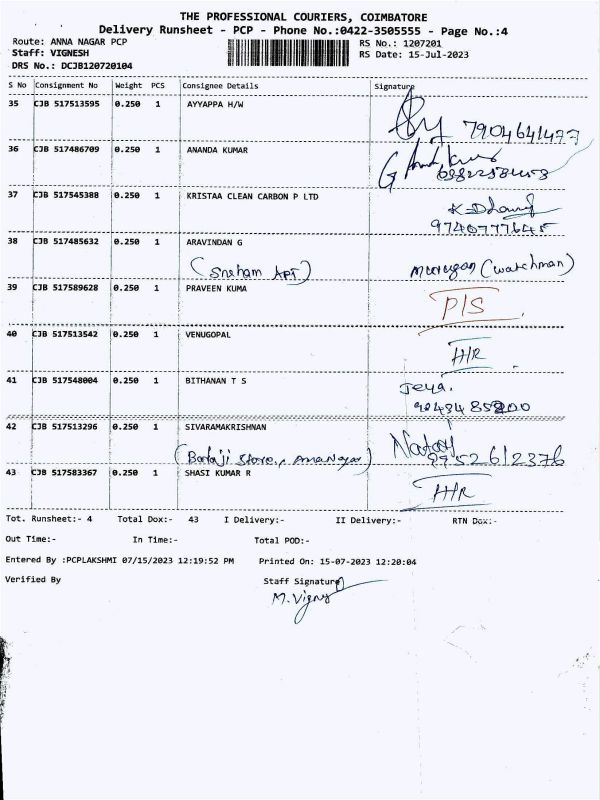 THE PROFESSIONAL COURIERS, COIMBATORE
Delivery Runsheet - PCP - Phone No.:0422-3505555 - Page No.:4
Route: ANNA NAGAR PCP RS No.: 1207201
Staff: VIGNESH RS Date: 15-Jul-2023
DRS No.: DCJB120720104
S No Consignment No Weight PCS Consignee Details Signature
35 CJB 517513595 0.250 1 AYYAPPA H/W
7904641477
36 CJB 517486709 0.250 1 ANANDA KUMAR
37 CJB 517545388 0.250 1 KRISTAA CLEAN CARBON P LTD
9740777645
38 CJB 517485632 0.250 1 ARAVINDAN G
(Sneham APT) Murugan (watchman)
39 CJB 517589628 0.250 1 PRAVEEN KUMA
P/S
40 CJB 517513542 0.250 1 VENUGOPAL
H/R
41 CJB 517548004 0.250 1 BITHANAN T S Jeya.
42 CJB 517513296 0.250 1 SIVARAMAKRISHNAN
9952612376
43 CJB 517583367 0.250 1 SHASI KUMAR R
H/R
Tot. Runsheet:- 4 Total Dox:- 43 I Delivery:- II Delivery:- RTN Dox:-
Out Time:- In Time:- Total POD:-
Entered By :PCPLAKSHMI 07/15/2023 12:19:52 PM Printed On: 15-07-2023 12:20:04
Verified By Staff Signature
M.Vigny